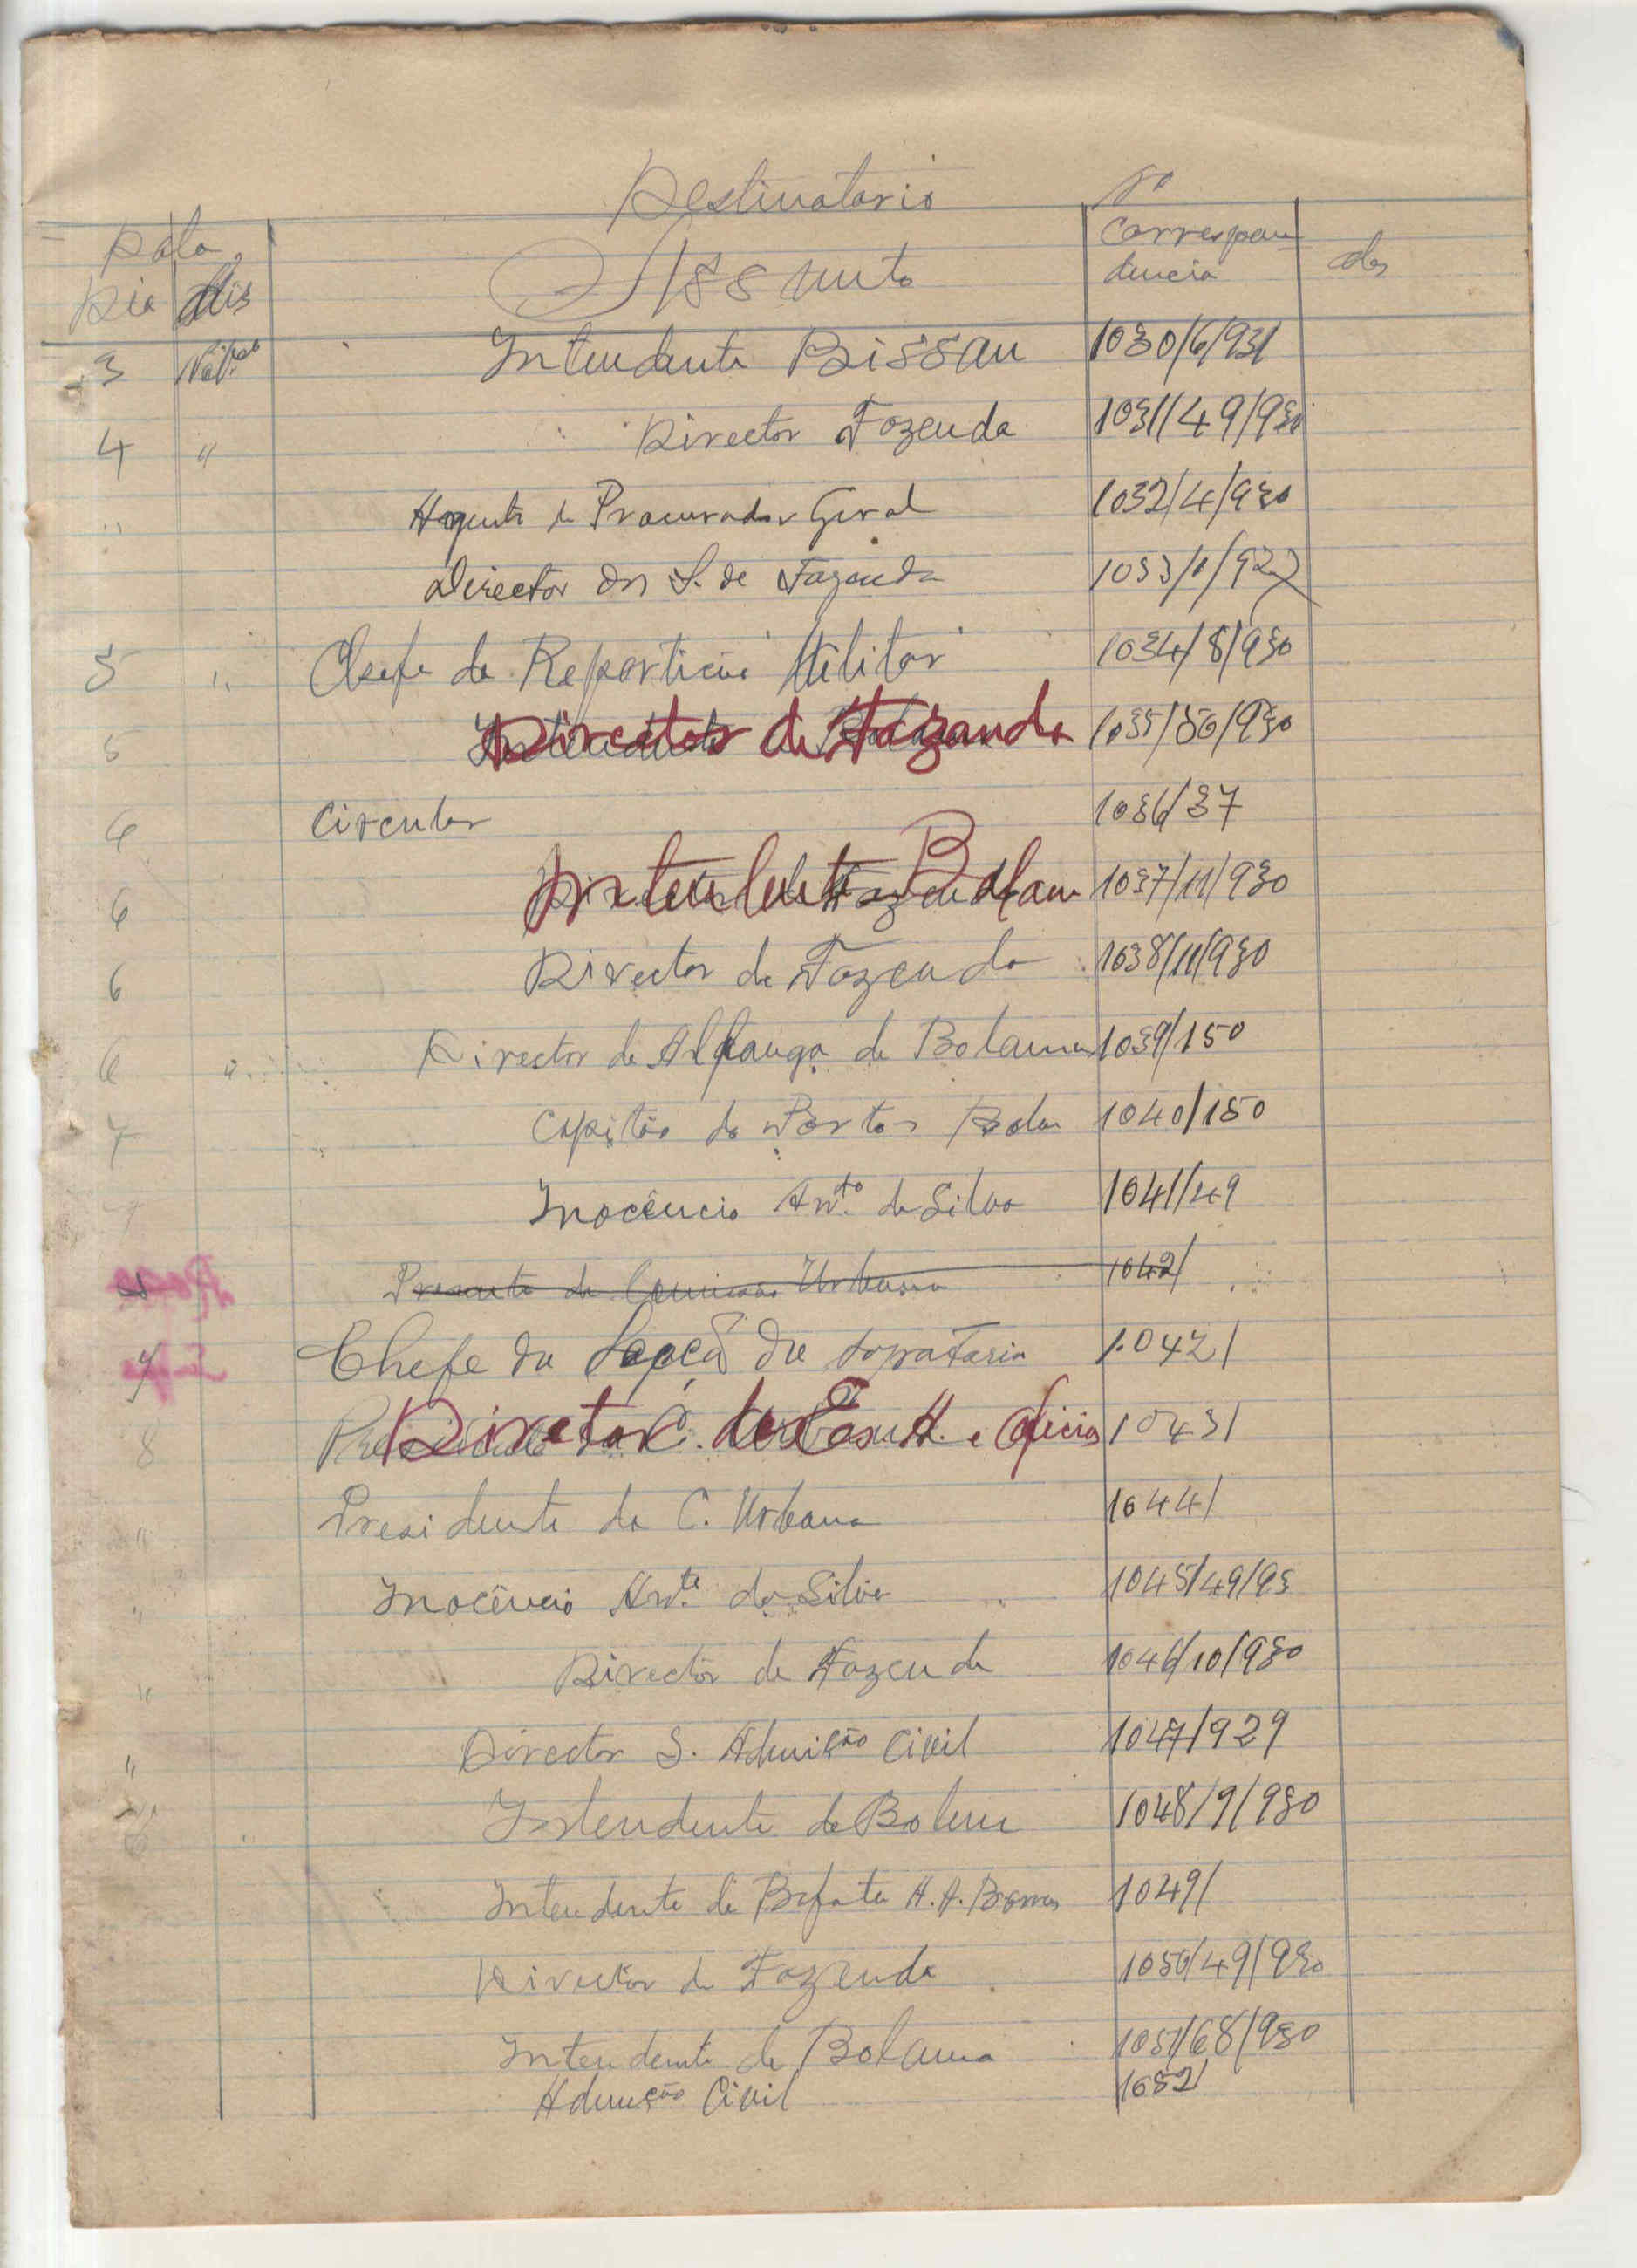 Destinatario Nº
Data Assunto Correspon
Dia Mês dencia
3 Intendente Bissau 1030/6/931
4 " Director Fazenda 1031/49/930
" Agente do Procurador Geral 1032/4/930
Director dos S. de Fazenda 1033/1/927
5 " Chefe da Repartição Militar 1034/8/930
5 Director de Fazenda 1035/50/930
6 Circular 1036/37
6 Intendente Bolama 1037/11/930
6 Director de Fazenda 1038/11/930
6 " Director de Alfandga de Bolama 1039/150
7 Capitão dos Portos Bolama 1040/150
7 Inocêncio Antº da Silva 1041/49
Presidente da Comissão Urbana 1042/
7 Chefe da Secção de 1.042/
8 Director da Esc. A. e Oficios 1043/
" Presidente da C. Urbana 1044/
" Inocêncio Antº da Silva 1045/49/93
" Director de Fazenda 1046/10/930
" Director S. Admição Civil 1047/929
" Intendente de Bolama 1048/9/930
Intendente de Bafata A. A. 1049/
Director de Fazenda 1050/49/930
Intendente de Bolama 1051/68/930
Admição Civil 1052/